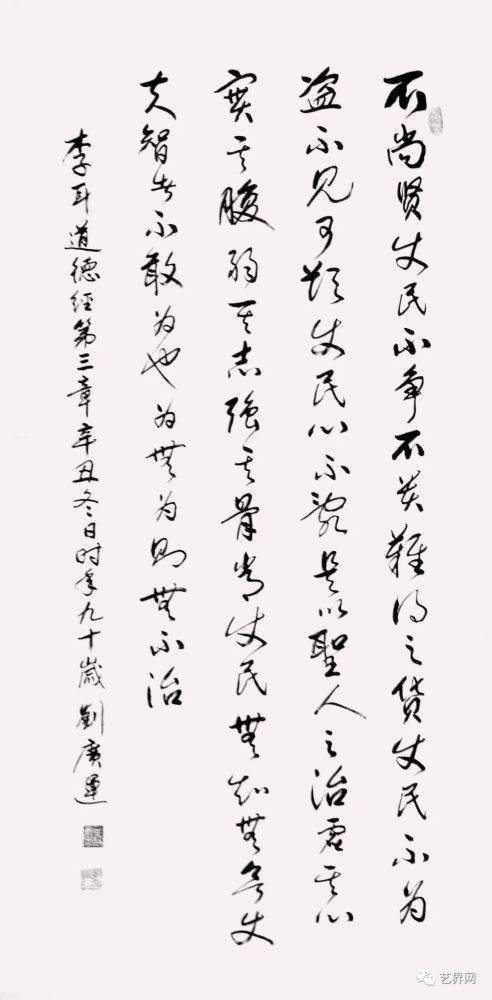 不尚贤使民不争不贵難得之货使民不为
盗不见可欲使民心不乱是以聖人之治虚其心
實其腹弱其志强其骨常使民無知無欲使
夫智者不敢为也为無为则無不治
李耳道德经第三章辛丑冬日时年九十歲劉廣運
艺界网